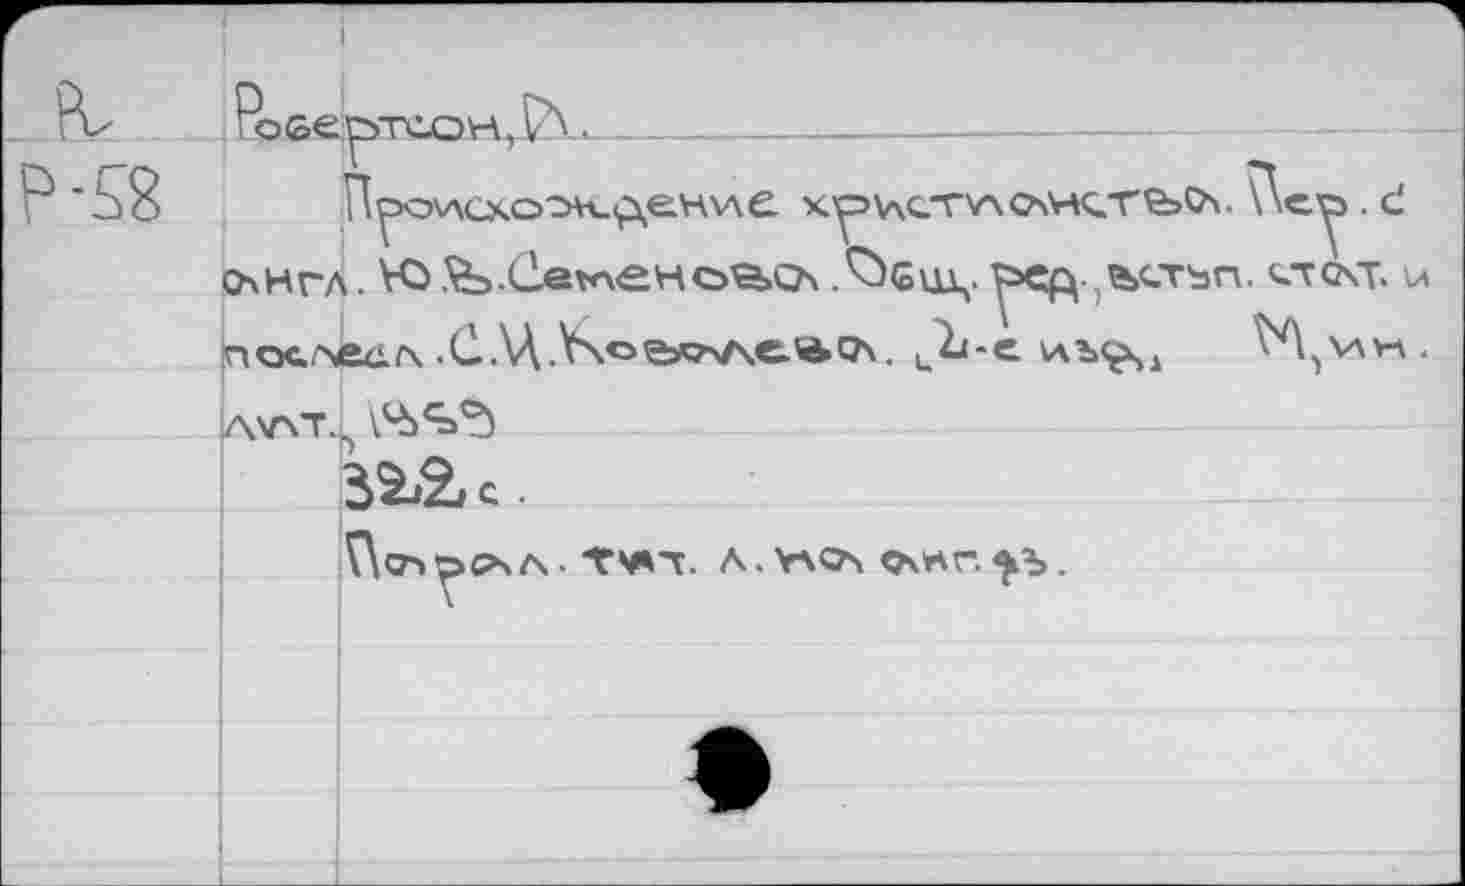 А
Робертсон, А.
Р-58
Происхождение христианства. Пер. с
англ. Ю.В.Семенова. Общ. ред., вступ. стат. и
послесл. С.И.Ковалева. [2-е изд., М, ин.
лит., 1959
322 с.
Парал. тит. л. на англ. яз.